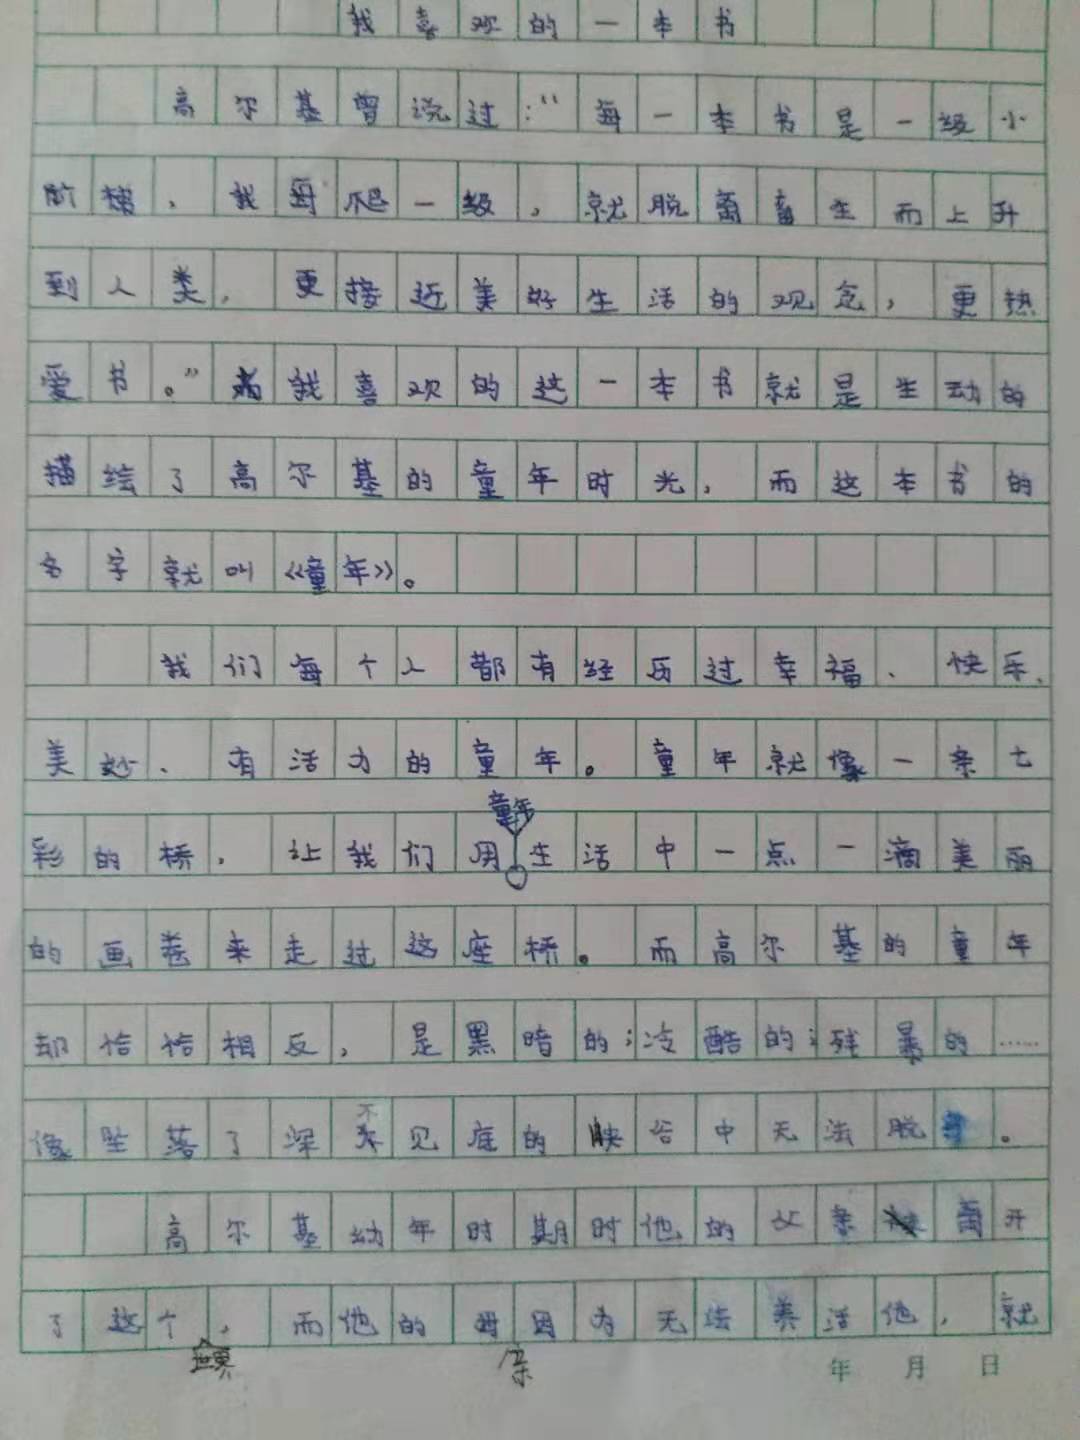 我喜欢的一本书
高尔基曾说过:“每一本书是一级小
阶梯,我每爬一级,就脱离畜生而上升
到人类,更接近美好生活的观念,更热
爱书。”我喜欢的这一本书就是生动的
描绘了高尔基的童年时光,而这本书的
名字就叫《童年》。
我们每个人都有经历过幸福、快乐、
美妙、有活力的童年。童年就像一条七
彩的桥,让我们用童年生活中一点一滴美丽
的画卷来走过这座桥。而高尔基的童年
却恰恰相反,是黑暗的;冷酷的;残暴的……
像坠落了深不见底的峡谷中无法脱。
高尔基幼年时期时他的父亲离开
了这个世界,而他的母亲因为无法养活他,就
年 月 日